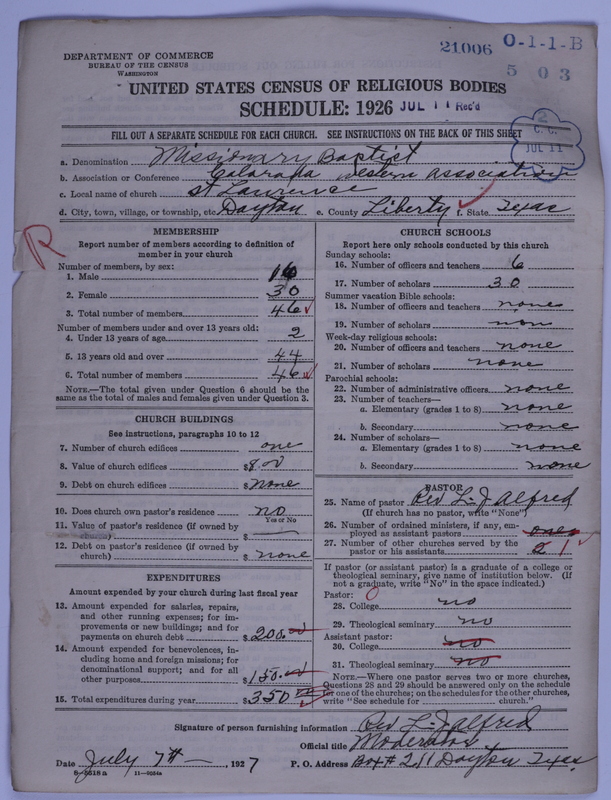 21006 0-1-1-B
503
DEPARTMENT OF COMMERCE
BUREAU OF THE CENSUS
WASHINGTON
UNITED STATES CENSUS OF RELIGIOUS BODIES
SCHEDULE: 1926 JUL 11 Rec'd
FILL OUT A SEPARATE SCHEDULE FOR EACH CHURCH. SEE INSTRUCTIONS ON THE BACK OF THIS SHEET
2 C. C. JUL 11
a. Denomination Missionary Baptist
b. Association or Conference Association
c. Local name of church St Lawrence
d. City, town, village, or township, etc. Dayton e. County Liberty f. State Texas
R
MEMBERSHIP
Report number of members according to definition of
member in your church
Number of members, by sex:
1. Male 16
2. Female 30
3. Total number of members 46
Number of members under and over 13 years old:
4. Under 13 years of age 2
5. 13 years old and over 44
6. Total number of members 46
NOTE.—The total given under Question 6 should be the
same as the total of males and females given under Question 3.
CHURCH BUILDINGS
See instructions, paragraphs 10 to 12
7. Number of church edifices one
8. Value of church edifices $8.00
9. Debt on church edifices $ none
10. Does church own pastor's residence? no
Yes or No
11. Value of pastor's residence (if owned by
church) $
12. Debt on pastor's residence (if owned by
church) $ none
EXPENDITURES
Amount expended by your church during last fiscal year
13. Amount expended for salaries, repairs,
and other running expenses; for im-
provements or new buildings; and for
payments on church debt $200.00
14. Amount expended for benevolences, in-
cluding home and foreign missions; for
denominational support; and for all
other purposes $150.00
15. Total expenditures during year $350
CHURCH SCHOOLS
Report here only schools conducted by this church
Sunday schools:
16. Number of officers and teachers 6
17. Number of scholars 30
Summer vacation Bible schools:
18. Number of officers and teachers none
19. Number of scholars non
Week-day religious schools:
20. Number of officers and teachers none
21. Number of scholars none
Parochial schools:
22. Number of administrative officers none
23. Number of teachers—
a. Elementary (grades 1 to 8) none
b. Secondary none
24. Number of scholars—
a. Elementary (grades 1 to 8) none
b. Secondary none
PASTOR
25. Name of pastor Rev L. J Alfred
(If church has no pastor, write "None")
26. Number of ordained ministers, if any, em-
ployed as assistant pastors
27. Number of other churches served by the
pastor or his assistants 1
If pastor (or assistant pastor) is a graduate of a college or
theological seminary, give name of institution below. (If
not a graduate, write "No" in the space indicated.)
Pastor:
28. College no
29. Theological seminary no
Assistant pastor:
30. College no
31. Theological seminary no
NOTE.—Where one pastor serves two or more churches,
Questions 28 and 29 should be answered only on the schedule
for one of the churches; on the schedules for the other churches,
write "See schedule for church."
Signature of person furnishing information Rev L. J Alfred
Official title Moderator
Date July 7th, 1927 P. O. Address Box # 211 Dayton Texas
8-5618a 11-9034a